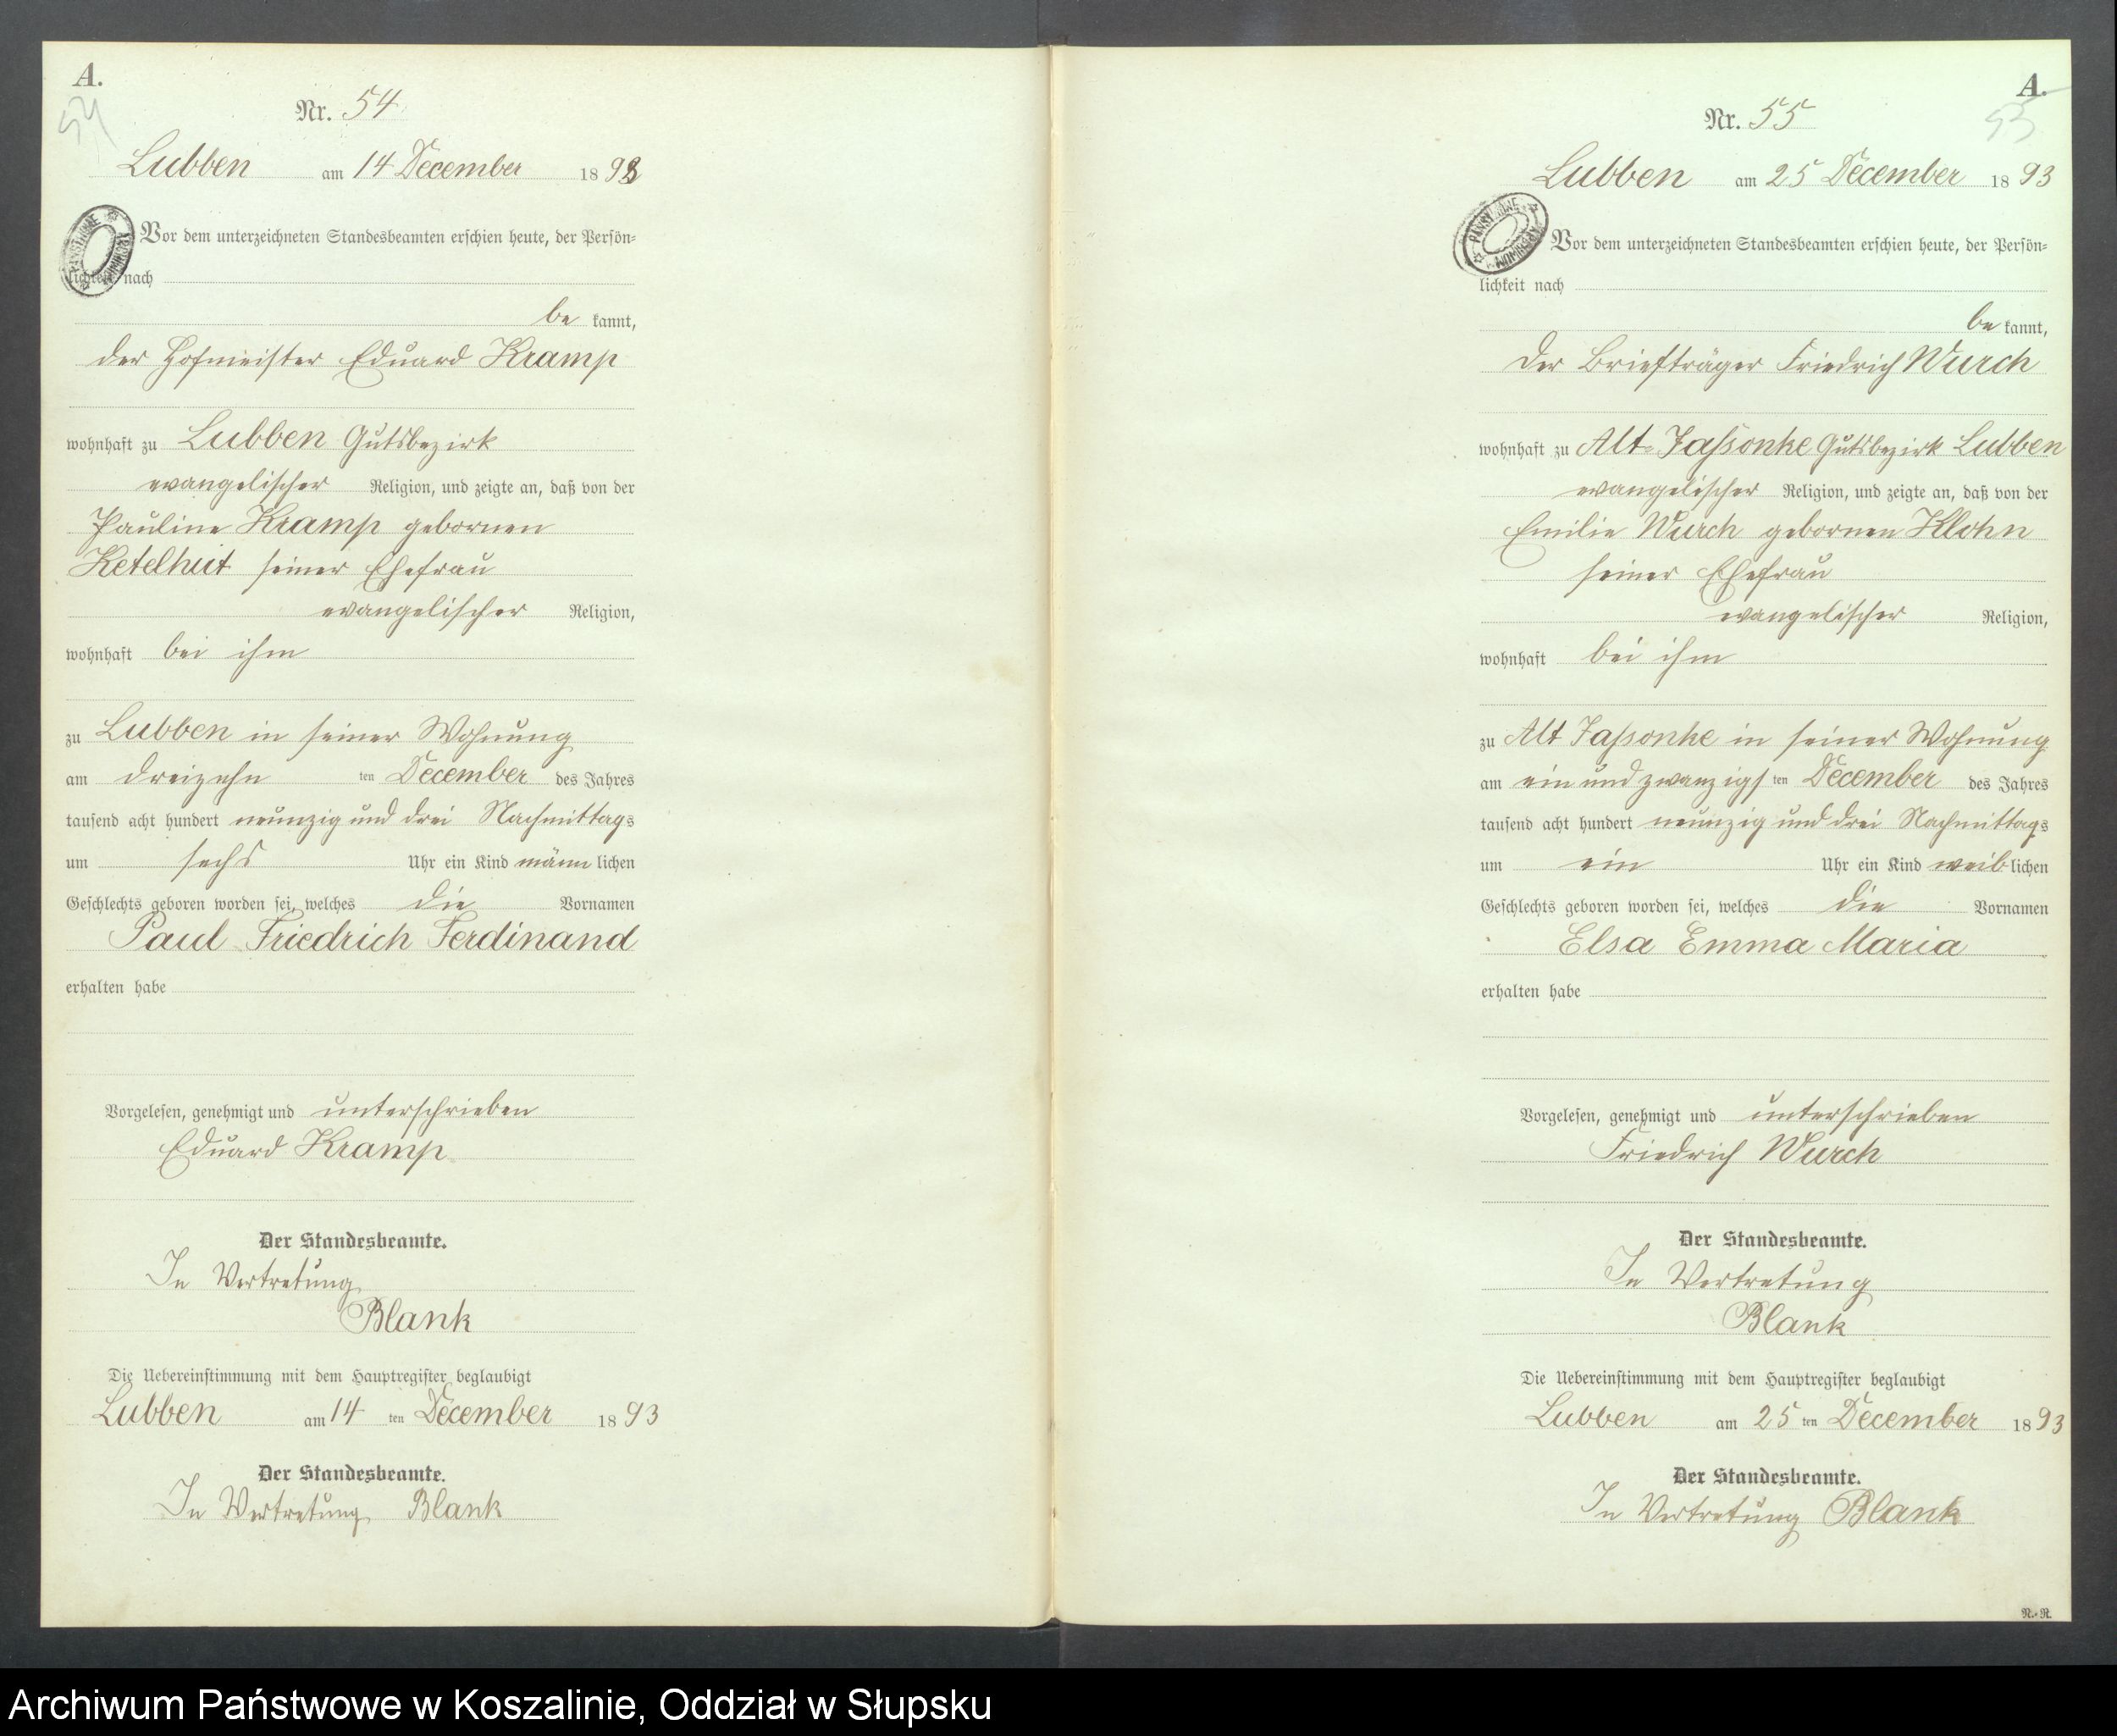 A.
54
Nr. 54
Lubben am 14 December 1893
Vor dem unterzeichneten Standesbeamten erschien heute, der Persön-
lichkeit nach
be kannt,
der Hofmeister Eduard Kramp
wohnhaft zu Lubben Gutsbezirk
evangelischer Religion, und zeigte an, daß von der
Pauline Kramp gebornen
Ketelhut seiner Ehefrau
evangelischer Religion,
wohnhaft bei ihm
zu Lubben in seiner Wohnung
am dreizehn ten December des Jahres
tausend acht hundert neunzig und drei Nachmittags
um sechs Uhr ein Kind männ lichen
Geschlechts geboren worden sei, welches die Vornamen
Paul Friedrich Ferdinand
erhalten habe
Vorgelesen, genehmigt und unterschrieben
Eduard Kramp
Der Standesbeamte.
In Vertretung
Blank
Die Uebereinstimmung mit dem Hauptregister beglaubigt
Lubben am 14 ten December 1893
Der Standesbeamte.
In Vertretung Blank
A.
55
Nr. 55
Lubben am 25 December 1893
Vor dem unterzeichneten Standesbeamten erschien heute, der Persön-
lichkeit nach
be kannt,
der Briefträger Friedrich Wurch
wohnhaft zu Alt-Jassonke Gutsbezirk Lubben
evangelischer Religion, und zeigte an, daß von der
Emilie Wurch gebornen Klohn
seiner Ehefrau
evangelischer Religion,
wohnhaft bei ihm
zu Alt Jassonke in seiner Wohnung
am ein und zwanzigs ten December des Jahres
tausend acht hundert neunzig und drei Nachmittags
um ein Uhr ein Kind weib lichen
Geschlechts geboren worden sei, welches die Vornamen
Elsa Emma Maria
erhalten habe
Vorgelesen, genehmigt und unterschrieben
Friedrich Wurch
Der Standesbeamte.
In Vertretung
Blank
Die Uebereinstimmung mit dem Hauptregister beglaubigt
Lubben am 25 ten December 1893
Der Standesbeamte.
In Vertretung Blank
N.-R.
Archiwum Państwowe w Koszalinie, Oddział w Słupsku